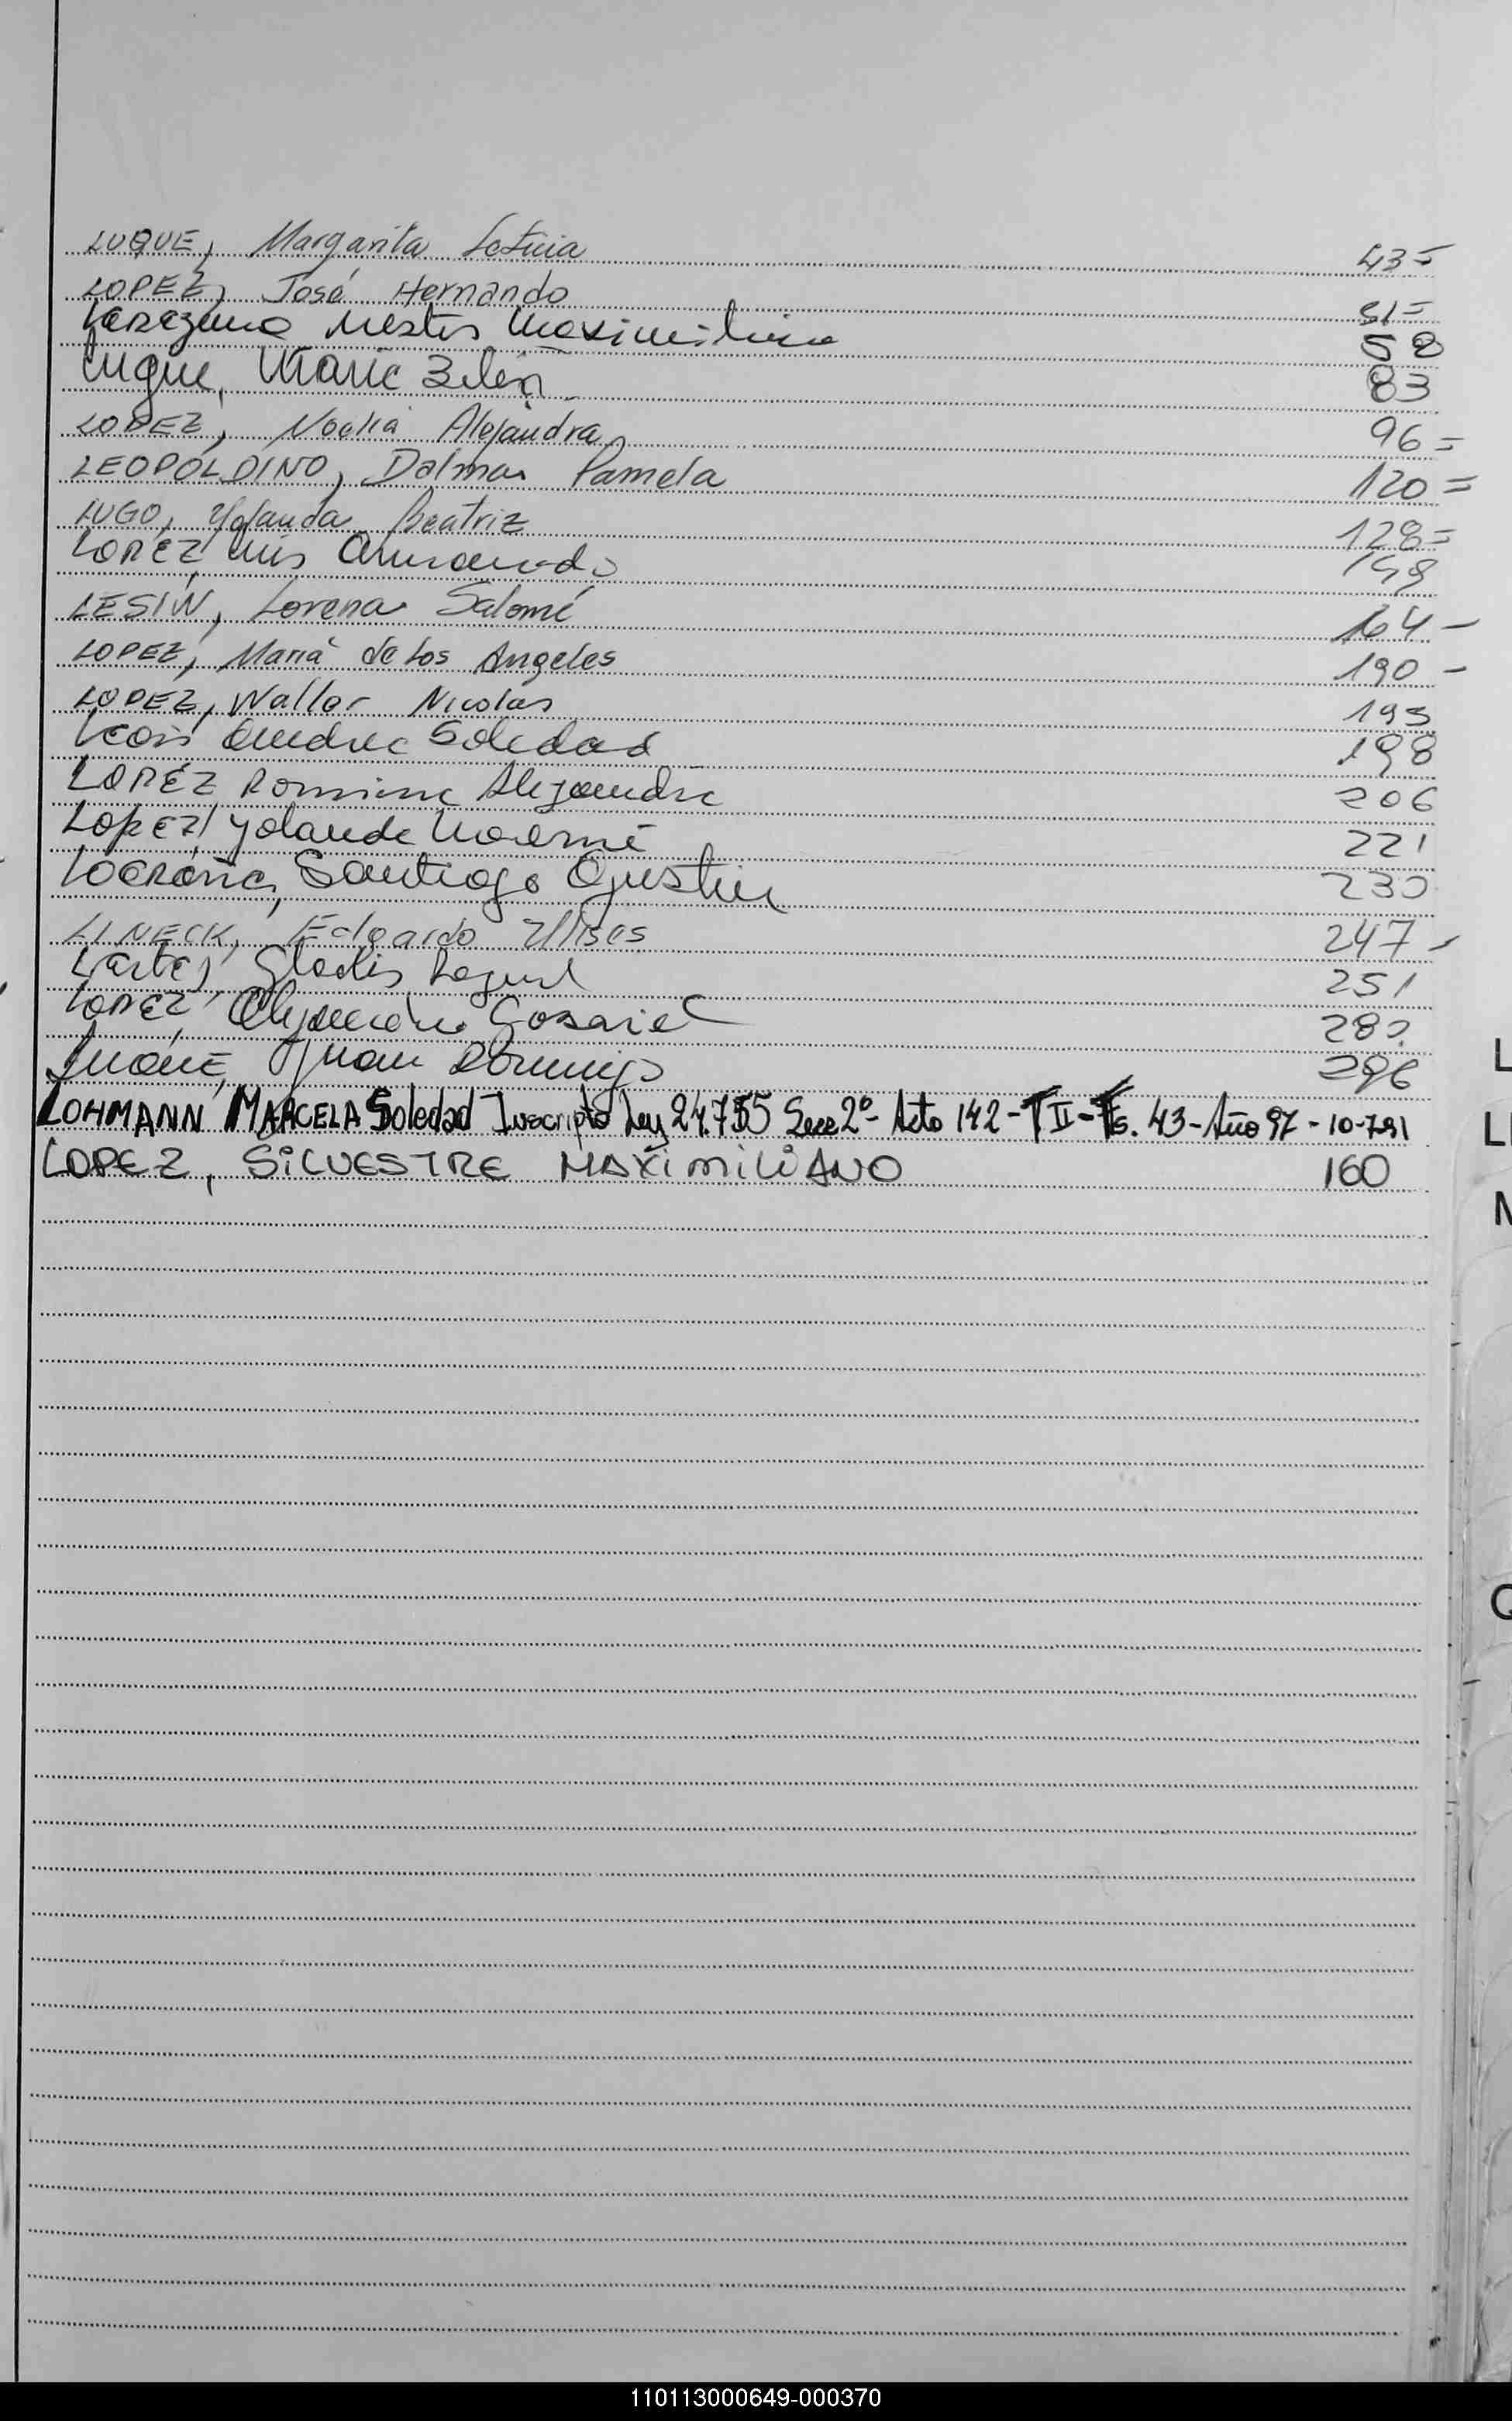 LUQUE, Margarita Leticia 43=
LOPEZ, José Hernando 51=
Maximiliano 58
Luque, María Belén 83
LOPEZ, Noelia Alejandra 96=
LEOPOLDINO, Dalma Pamela 120=
LUGO, Yolanda Beatriz 128=
LOPEZ, Luis Armando 148
LESIW, Lorena Salomé 164-
LOPEZ, María de los Angeles 190-
LOPEZ, Walter Nicolas 193
Soledad 198
LOPEZ Romina Alejandra 206
Lopez, Yolanda Noemí 221
Santiago Agustin 230
LINECK, Edgardo Ulises 247-
Gladis Raquel 251
LOPEZ, Alejandro Gabriel 282
Juan Domingo 296
LOHMANN MARCELA Soledad Inscripta Ley 24.755 Secc 2º- Acto 142-T II-Fs. 43-Año 97-10-791
LOPEZ, SILVESTRE MAXIMILIANO 160
L
LL
M
110113000649-000370